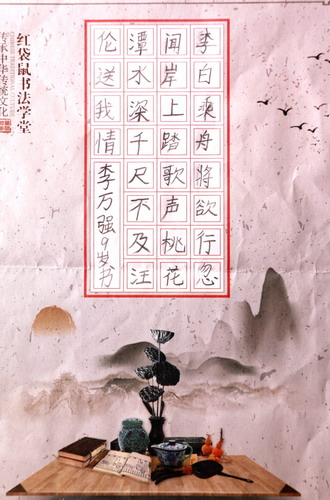 李白乘舟将欲行忽
闻岸上踏歌声桃花
潭水深千尺不及汪
伦送我情李万强9岁书
红袋鼠书法学堂
传承中华传统文化